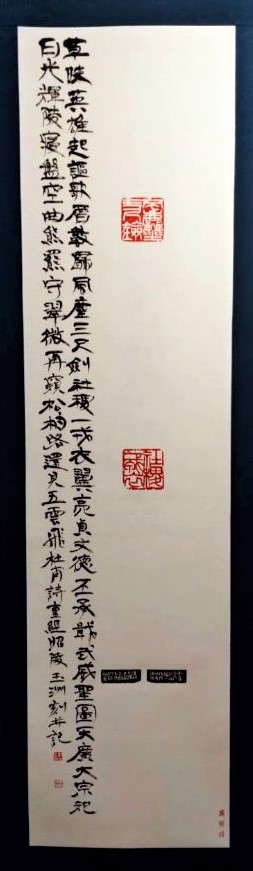 草昧英雄起謳歌曆數歸風塵三尺劍社稷一戎衣翼亮貞文德丕承戢武威聖圖天廣大宗祀
日光輝陵寢盤空曲熊羆守翠微再窺松柏路還見五雲飛杜甫詩重經昭陵玉洲刻并記
風塵三尺劍
社稷一戎衣